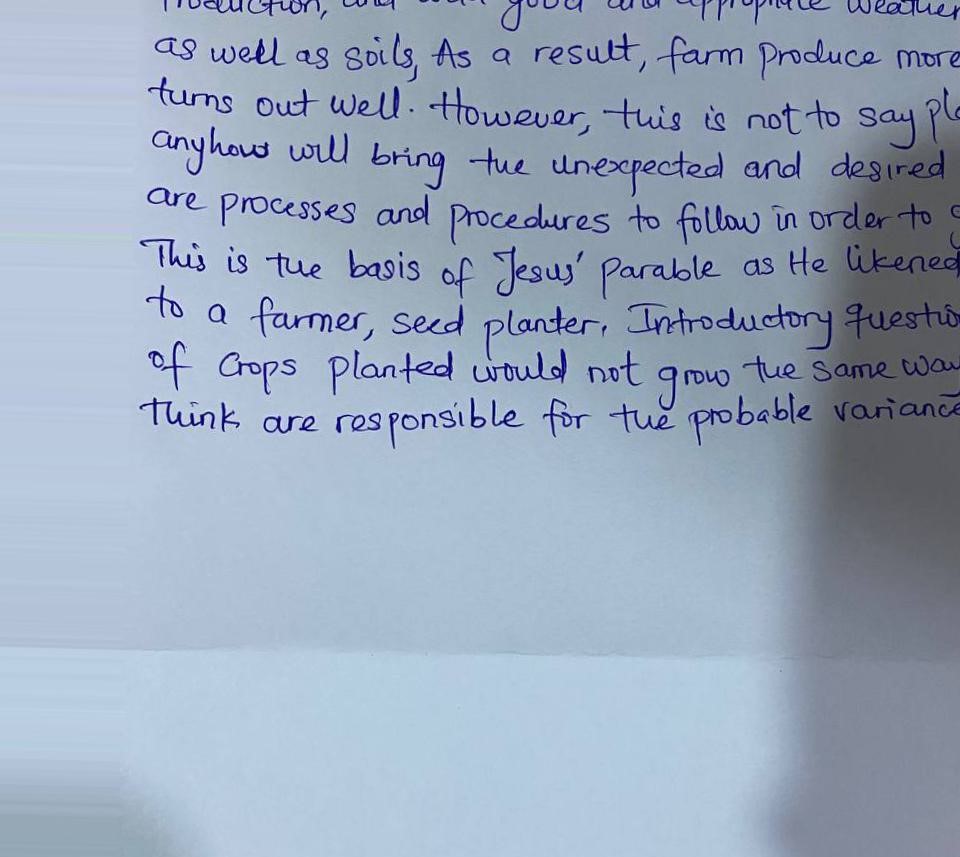 good and appropriate weather
as well as soils, As a result, farm produce more
turns out well. However, this is not to say
anyhow will bring the unexpected and desired
are processes and procedures to follow in order to
This is the basis of Jesus' parable as He likened
to a farmer, seed planter. Introductory
of Crops planted would not grow the same
think are responsible for the probable